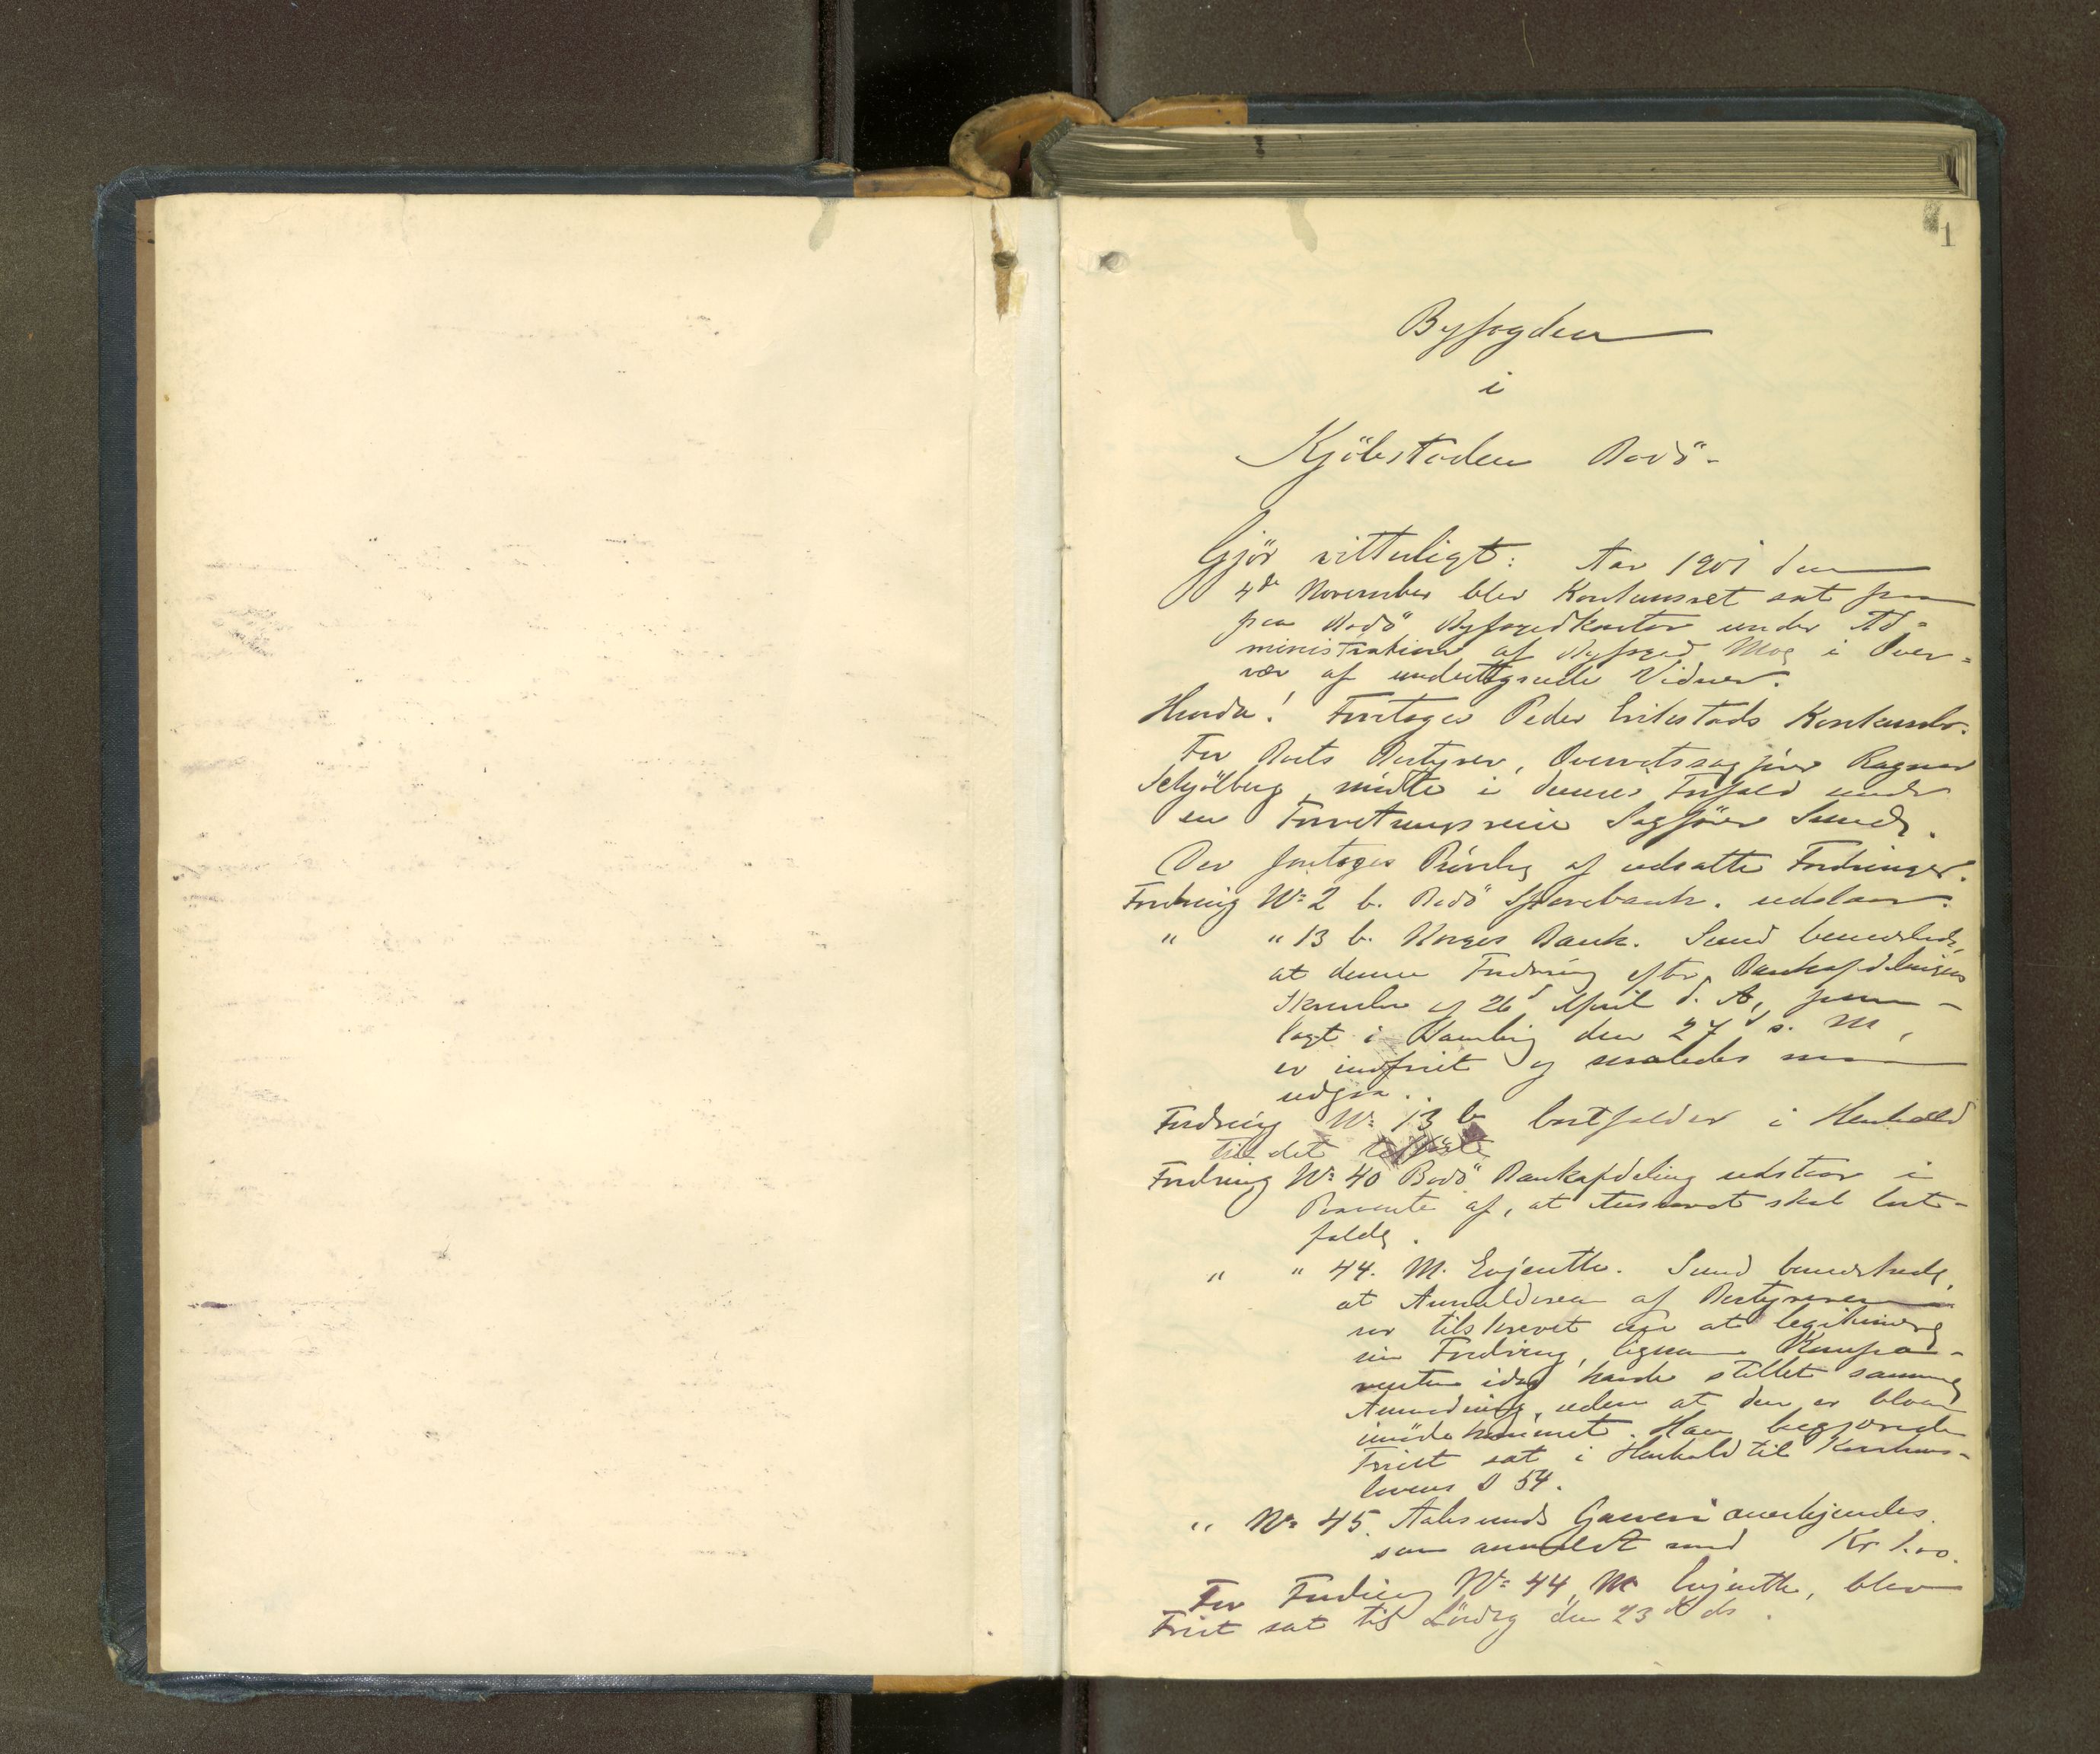 1
Byfogden
i
Kjöbstaden Bodö.
Gjör vitterligt: Aar 1901 den
4de November blev Konkursret sat paa
paa Bodö Byfogedkontor under Ad-
ministration af Byfoged Moe i Over-
vær af undertegnede Vidner.
Hvorda! Foretages Peder Erikstads Konkursbo.
For Boets Bestyrer, Overretssagfører Ragnar
Schjölberg, mødte i dennes Forfald under
en Forretningsreise Sagfører Sund.
Der foretoges Prøvelse af udsatte Fordringer.
Fordring No 2 b. Bodö Sparebank. udstaar.
" " 13 b. Norges Bank. Sund bemærkede,
at denne Fordring efter Bankafdelingens
Skrivelse af 26d April d. A., frem-
lagt i Samling den 27d s. M.,
er indfriet og saaledes maa
udgaa.
Fordring No 13 b bortfalder i Henhold
til det tilførte
Fordring No 40 Bodö Bankafdeling udstaar i
Paavente af, at Ansvaret skal bort-
falde.
" " 44. M. Evjenthe. Sund bemærkede,
at Anmelderen af Bestyreren
var tilskrevet om at legitimere
sin Fordring, ligesom Kompa-
renten idag havde stillet samme
Anmodning, uden at den er bleven
imødekommet. Han begjærede
Frist sat i Henhold til Konkurs-
lovens § 54.
" No 45. Aalesunds Garveri anerkjendes
som anmeldt med Kr 1.00.
For Fordring No 44, M Evjenthe, blev
Frist sat til Lördag den 23d ds.